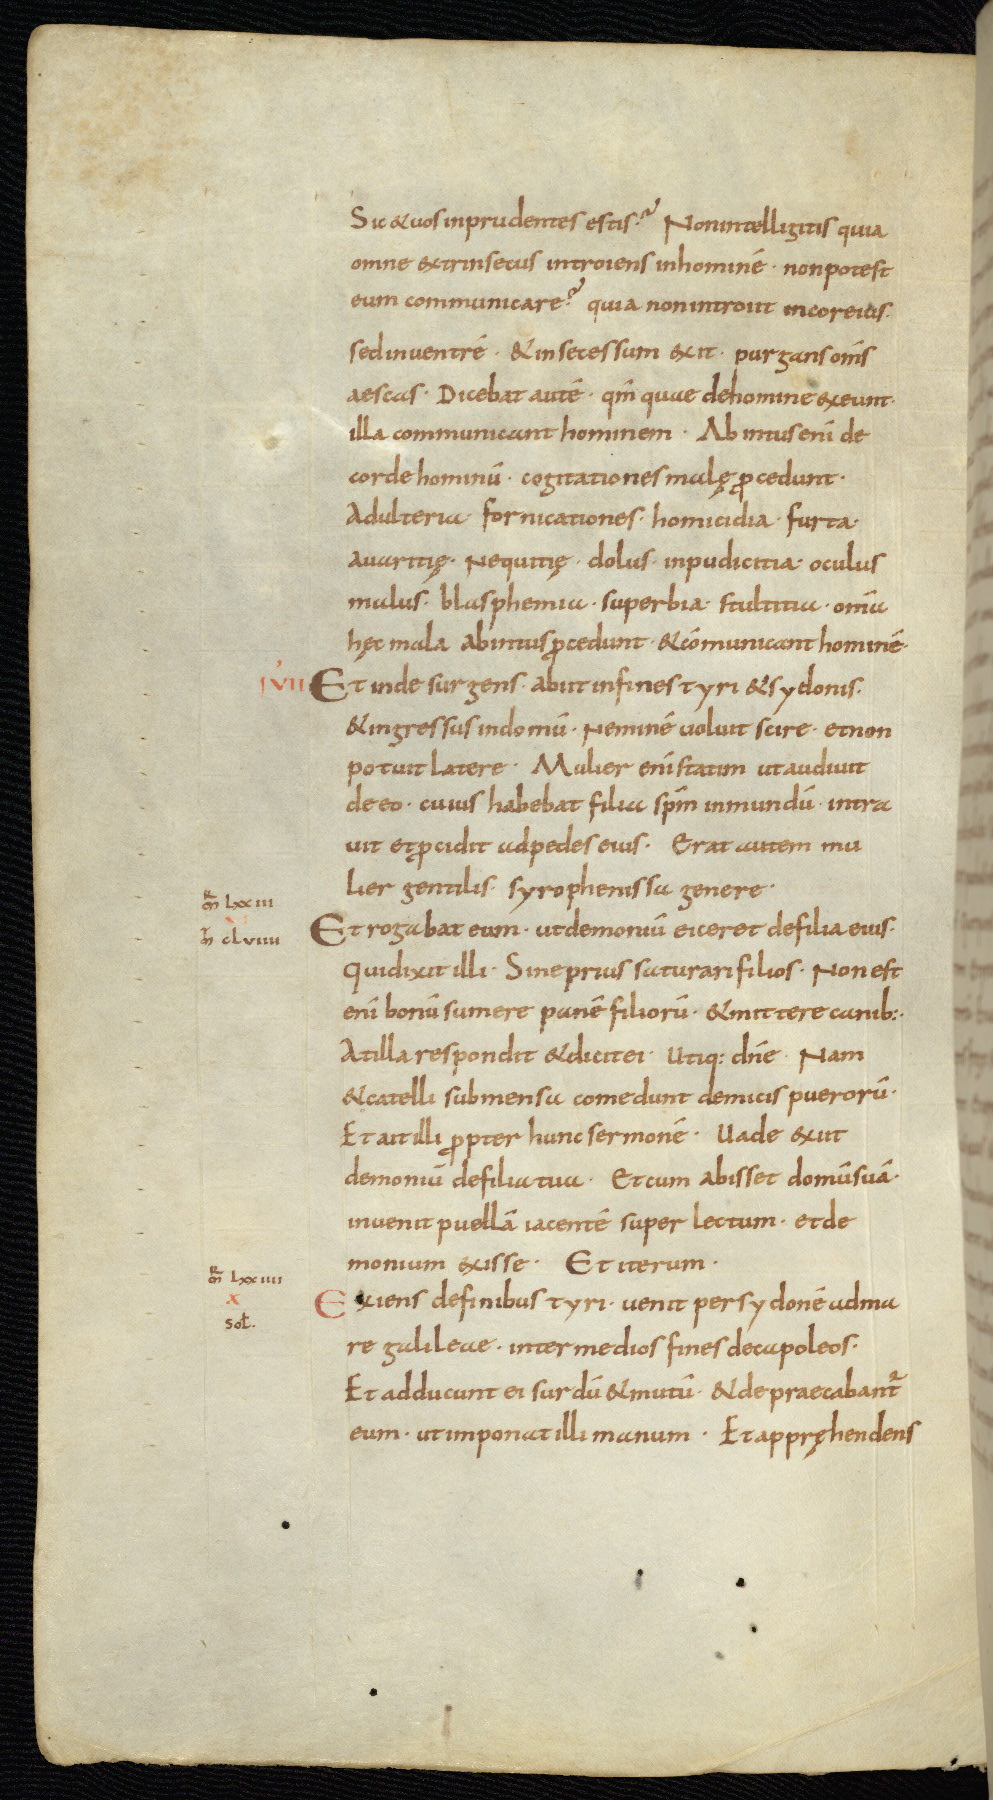 Sic &uos inprudentes estis? Nonintelligitis quia
omne extrinsecus introiens inhominē · nonpotest
eum communicare? quia nonintroiit incoreius·
sedinuentrē · &insecessum exit · purgans om̄s
aescas · Dicebat autē · qm̄ quae dehomine exeunt·
illa communicant hominem · Ab intus enī de
corde hominū · cogitationes malę ꝓcedunt ·
Adulteria · fornicationes · homicidia · furta·
auaritię · Nequitię · dolus · inpudicitia · oculus
malus · blasphemia · superbia · stultitia · om̄a
hęc mala abintus ꝓcedunt · &cōmunicant hominē·
xvii Et inde surgens · abiit infines tyri &sydonis·
&ingressus indomū · Neminē uoluit scire · etnon
potuit latere · Mulier enī statim ut audiuit
deeo · cuius habebat filia sp̄m inmundū · intra
uit etꝓcidit adpedes eius · Erat autem mu
lier gentilis · syrophenissa genere ·
m̄r lxxiii
m̄t clviiii
Et rogabat eum · utdemoniū eiceret defilia eius·
Quidixit illi · Sineprius saturari filios · Non est
enī bonū sumere panē filiorū · &mittere canib:·
Atilla respondit &dicit ei · Utiq: dn̄e · Nam
&catelli submensa comedunt demicis puerorū·
Et ait illi ꝓpter hunc sermonē · Uade exiit
demoniū defilia tua · Etcum abisset domūsuā·
inuenit puellā iacentē super lectum · etde
monium exisse · Et iterum ·
m̄r lxxiiii
x
sol.
Exiens definibus tyri · uenit persydonē adma
re galileae · intermedios fines decapoleos·
Et adducunt ei surdū &mutū · &depraecabantr̄
eum · utimponat illi manum · Et appręhendens